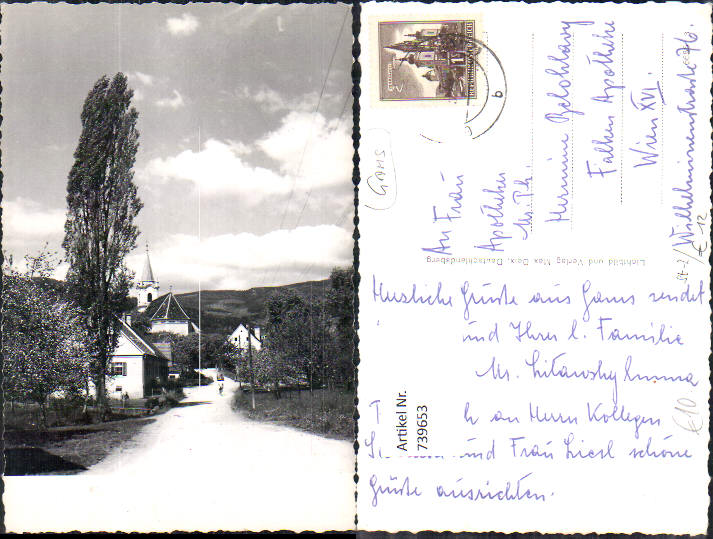 An Frau
Apotheker
Mr. Ph.
Hermine Belohlavy
Falken Apotheke
Wien XVI.
Wilhelminenstraße 76.
Gams
Lichtbild und Verlag Max Deix, Deutschlandsberg.
St-2/
€ 12
Herzliche Grüße aus Gams sendet
und Ihrer l. Familie
Mr. Litawsky Emma
an Herrn Kollegen
und Frau Liesl schöne
Grüße ausrichten.
€10
Artikel Nr.
739653
b